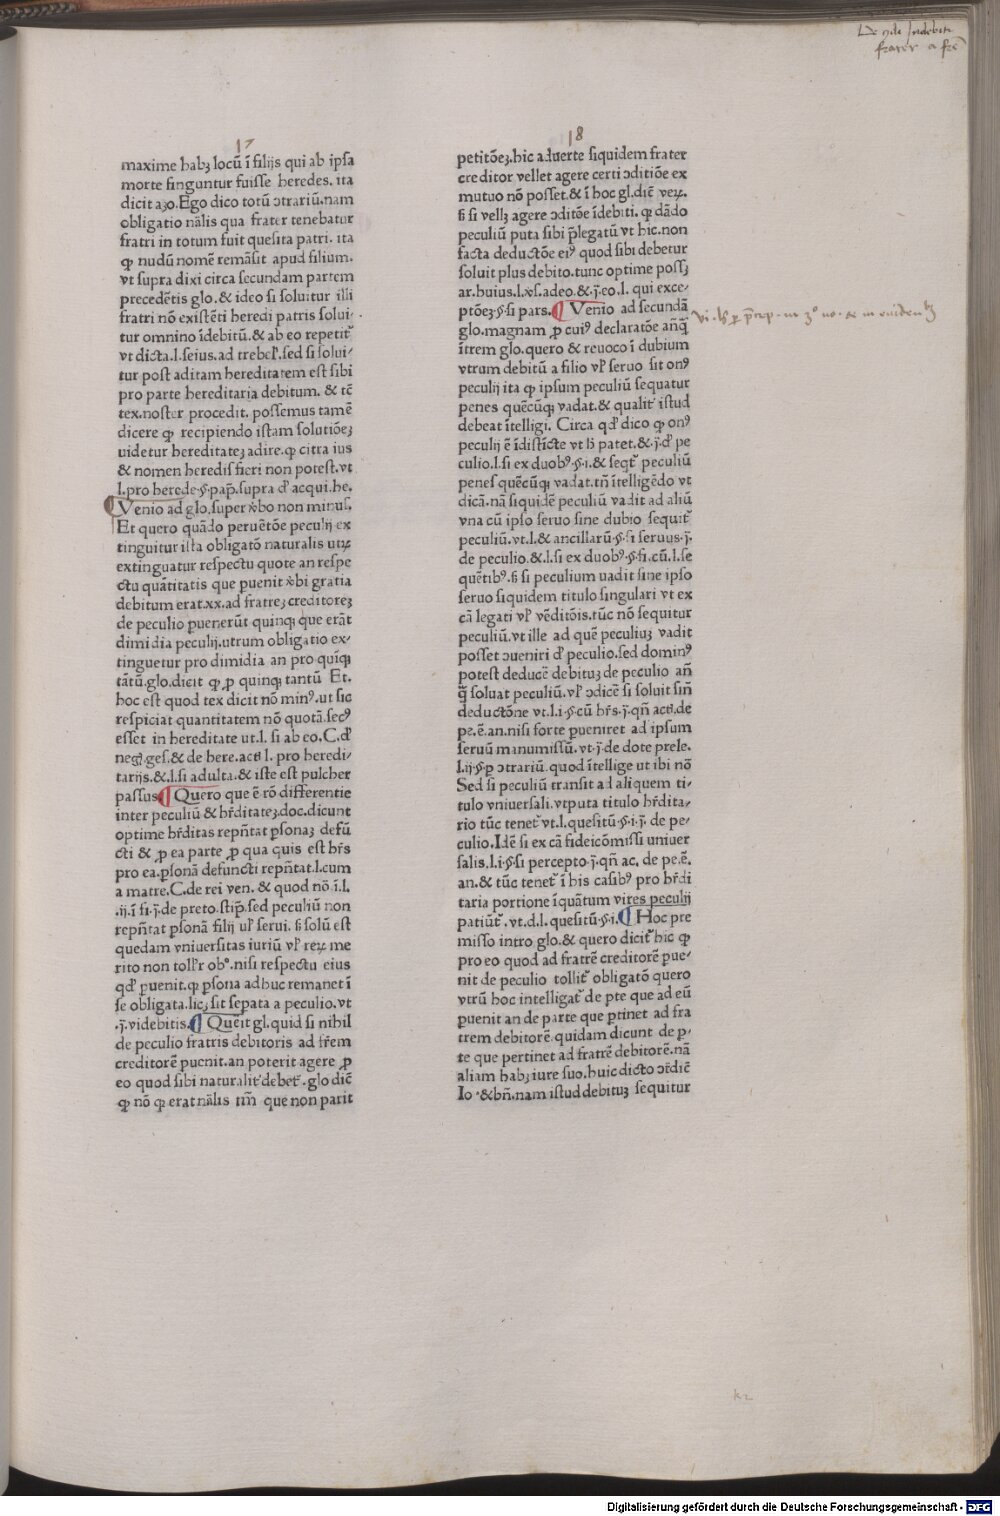 De 9di Indebiti
frater a fre
17
maxime habꝫ locū ī filijs qui ab ipsa
morte finguntur fuisse heredes. ita
dicit aȝo. Ego dico totū ↄtrariū. nam
obligatio nālis qua frater tenebatur
fratri in totum fuit quesita patri. ita
ꝙ nudū nomē remāsit apud filium.
vt supra dixi circa secundam partem
precedētis glo. & ideo si soluitur illi
fratri nō existēti heredi patris solui⸗
tur omnino īdebitū. & ab eo repetit᷑
vt dicta. l. seius. ad trebell̓. sed si solui⸗
tur post aditam hereditatem est sibi
pro parte hereditaria debitum. & tē
tex. noster procedit. possemus tamē
dicere ꝙ recipiendo istam solutiōeꝫ
uidetur hereditateꝫ adire. ꝙ citra ius
& nomen heredis fieri non potest. vt
l. pro herede. §. pap̄. supra d̓ acqui. he.
Venio ad glo. super v̓bo non minus.
Et quero quādo peruētōe peculij ex
tinguitur illa obligatō naturalis utꝝ
extinguatur respectu quote an respe
ctu quātitatis que ꝓuenit v̓bi gratia
debitum erat. xx. ad fratreꝫ creditoreꝫ
de peculio ꝓuenerūt quinqꝫ que erāt
dimidia peculij. utrum obligatio ex⸗
tinguetur pro dimidia an pro quīqꝫ
tātū. glo. dicit ꝙ ꝓ quinqꝫ tantū Et.
hoc est quod tex dicit nō minꝰ. ut sic
respiciat quantitatem nō quotā. secꝰ
esset in hereditate ut. l. si ab eo. C. d̓
neg̓. ges. & de here. acti l. pro heredi⸗
tarijs. &. l. si adulta. & iste est pulcher
passus. ¶ Quero que ē rō differentie
inter peculiū & hr̄ditateꝫ. doc. dicunt
optime hr̄ditas repn̄tat ꝑsonaꝫ defū
cti & ꝓ ea parte ꝓ qua quis est hr̄s
pro ea. ꝑsonā defuncti repn̄tat. l. cum
a matre. C. de rei ven. & quod nō ī. l.
.ij. ī fi. j̄. de preto. stip̄. sed peculiū non
repn̄tat ꝑsonā filij ul̓ serui. s̄ solū est
quedam vniuersitas iuriū vl̓ reꝝ me
rito non toll̓r ob°. nisi respectu eius
qd̓ ꝓuenit. ꝙ ꝑsona adhuc remanet ī
se obligata. licꝫ sit sepata a peculio. vt
.j̄. videbitis. ¶ Querit gl. quid si nihil
de peculio fratris debitoris ad fr̄em
creditorē ꝓuenit. an poterit agere ꝓ
eo quod sibi naturalit᷑ debet᷑. glo dicē
ꝙ nō ꝙ erat nālis tm̄ que non parit
18
petitōeꝫ. hic aduerte siquidem frater
creditor vellet agere certi ↄditiōe ex
mutuo nō posset. & ī hoc gl. diē veꝝ.
s̄ si vellꝫ agere ↄditōe īdebiti. ꝙ dādo
peculiū puta sibi p̄legatū vt hic. non
facta deductōe eiꝰ quod sibi debetur
soluit plus debito. tunc optime possꝫ
ar. huius. l. v̓s. adeo. &. j̄. eo. l. qui exce⸗
ptōeꝫ. §. si pars. ¶ Venio ad secundā
glo. magnam ꝓ cuiꝰ declaratōe anq̄
ītrem glo. quero & reuoco ī dubium
vtrum debitū a filio vl̓ seruo sit onꝰ
peculij ita ꝙ ipsum peculiū sequatur
penes quēcūqꝫ vadat. & qualit᷑ istud
debeat ītelligi. Circa qd̓ dico ꝙ onꝰ
peculij ē īdistīcte vt l3 patet. &. j̄. d̓ pe
culio. l. si ex duobꝰ. §. i. & seqt᷑ peculiū
penes quēcūqꝫ vadat. tn̄ ītelligēdo vt
dicā. nā siquidē peculiū vadit ad aliū
vna cū ipso seruo sine dubio sequit᷑
peculiū. vt. l. & ancillarū. §. si seruus. j̄.
de peculio. &. l. si ex duobꝰ. §. fi. cū. l. se
quētibꝰ. s̄ si peculium uadit sine ipso
seruo siquidem titulo singulari vt ex
cā legati vl̓ vēditōis. tūc nō sequitur
peculiū. vt ille ad quē peculiuꝫ vadit
posset ↄueniri d̓ peculio. sed dominꝰ
potest deducē debituꝫ de peculio an̄
q̄ soluat peculiū. vl̓ ↄdicē si soluit sin̄
deductōne vt. l. i. §. cū hr̄s. j̄. qn̄ acti. de
pe. ē. an. nisi forte ꝓueniret ad ipsum
seruū manumissū. vt. j̄. de dote prele.
l. ij. §. ꝓ ↄtrariū. quod ītellige ut ibi nō
Sed si peculiū transit ad aliquem ti⸗
tulo vniuersali. vtputa titulo hr̄dita⸗
rio tūc tenet᷑ vt. l. quesitū. §. i. j̄. de pe⸗
culio. Idē si ex cā fideicōmissi uniuer
salis. l. i. §. si percepto. j̄. qn̄ ac. de pe. ē.
an. & tūc tenet᷑ ī his casibꝰ pro hr̄di
taria portione īquātum vires peculij
patiūt᷑. vt. d. l. quesitū. §. i. ¶ Hoc pre
misso intro glo. & quero dicit᷑ hic ꝙ
pro eo quod ad fratrē creditorē ꝓue⸗
nit de peculio tollit᷑ obligatō quero
vtrū hoc intelligat᷑ de pte que ad eū
ꝓuenit an de parte que ꝑtinet ad fra
trem debitorē. quidam dicunt de p⸗
te que pertinet ad fratrē debitorē. nā
aliam habꝫ iure suo. huic dicto ↄr̄dīc
Io. & bn̄. nam istud debituꝫ sequitur
Digitalisierung gefördert durch die Deutsche Forschungsgemeinschaft - DFG